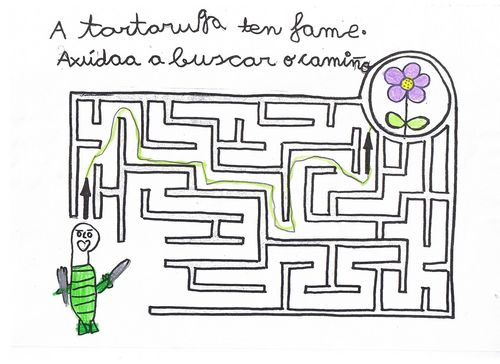 A tartaruga ten fame.
Axúdaa a buscar o camiño